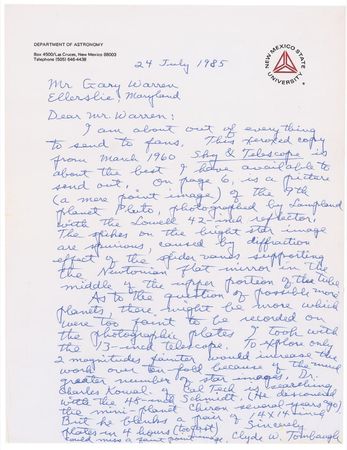 DEPARTMENT OF ASTRONOMY
Box 4500/Las Cruces, New Mexico 88003
Telephone (505) 646-4438
NEW MEXICO STATE UNIVERSITY
24 July 1985
Mr Gary Warren
Ellerslie, Maryland
Dear Mr. Warren:
I am about out of everything
to send to fans. This xeroxed copy
from March 1960 Sky & Telescope is
about the best I have available to
send out. On page 6, is a picture
(a mere point image) of the 9th
planet Pluto, photographed by Lampland
with the Lowell 42-inch reflector.
The spikes on the bright star image
are spurious, caused by diffraction
effect of the spider vanes supporting
the Newtonian flat mirror in the
middle of the upper portion of the tube
As to the question of possible more
planets, there might be more which
were too faint to be recorded on
the photographic plates I took with
the 13-inch telescope. To explore only
2 magnitudes fainter would increase the
work over ten fold because of the much
greater number of star images. Dr.
Charles Kowal of Cal Tech is searching
with the 48-inch Schmidt. (He discovered
the mini-planet Chiron several years ago)
But he blinks a pair of 14X14 inch
plates in 4 hours (too fast)
Could miss a faint image.
Sincerely
Clyde W. Tombaugh